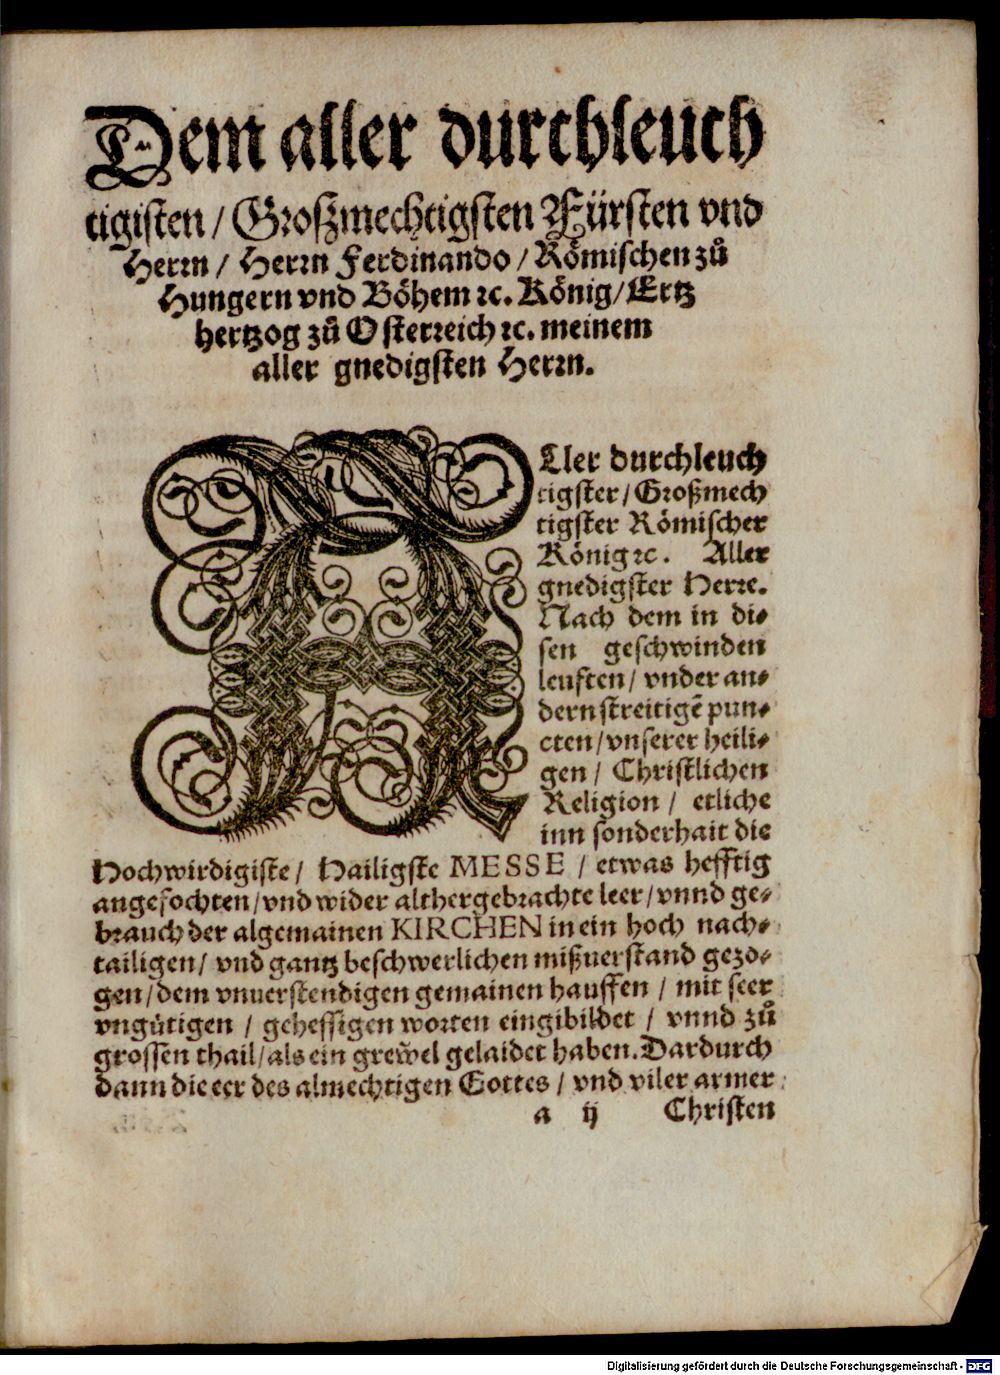 Dem aller durchleuch
tigisten / Großmechtigsten Fürsten vnd
Herrn / Herrn Ferdinando / Römischen zů
Hungern vnd Böhem ꝛc. König / Ertz
hertzog zů Osterreich ꝛc. meinem
aller gnedigsten Herrn.
ALler durchleuch
tigster / Großmech
tigster Römischer
König ꝛc. Aller
gnedigster Herre.
Nach dem in di⸗
sen geschwinden
leuften / vnder an⸗
dern streitigē pun⸗
cten / vnserer heili⸗
gen / Christlichen
Religion / etliche
inn sonderhait die
Hochwirdigiste / Hailigste MESSE / etwas hefftig
angefochten / vnd wider althergebrachte leer / vnnd ge⸗
brauch der algemainen KIRCHEN in ein hoch nach⸗
tailigen / vnd gantz beschwerlichen mißuerstand gezo⸗
gen / dem vnuerstendigen gemainen hauffen / mit seer
vngütigen / gehessigen worten eingibildet / vnnd zů
grossen thail / als ein grew̃el gelaidet haben. Dardurch
dann die eer des almechtigen Gottes / vnd viler armer
a ij Christen
Digitalisierung gefördert durch die Deutsche Forschungsgemeinschaft - DFG